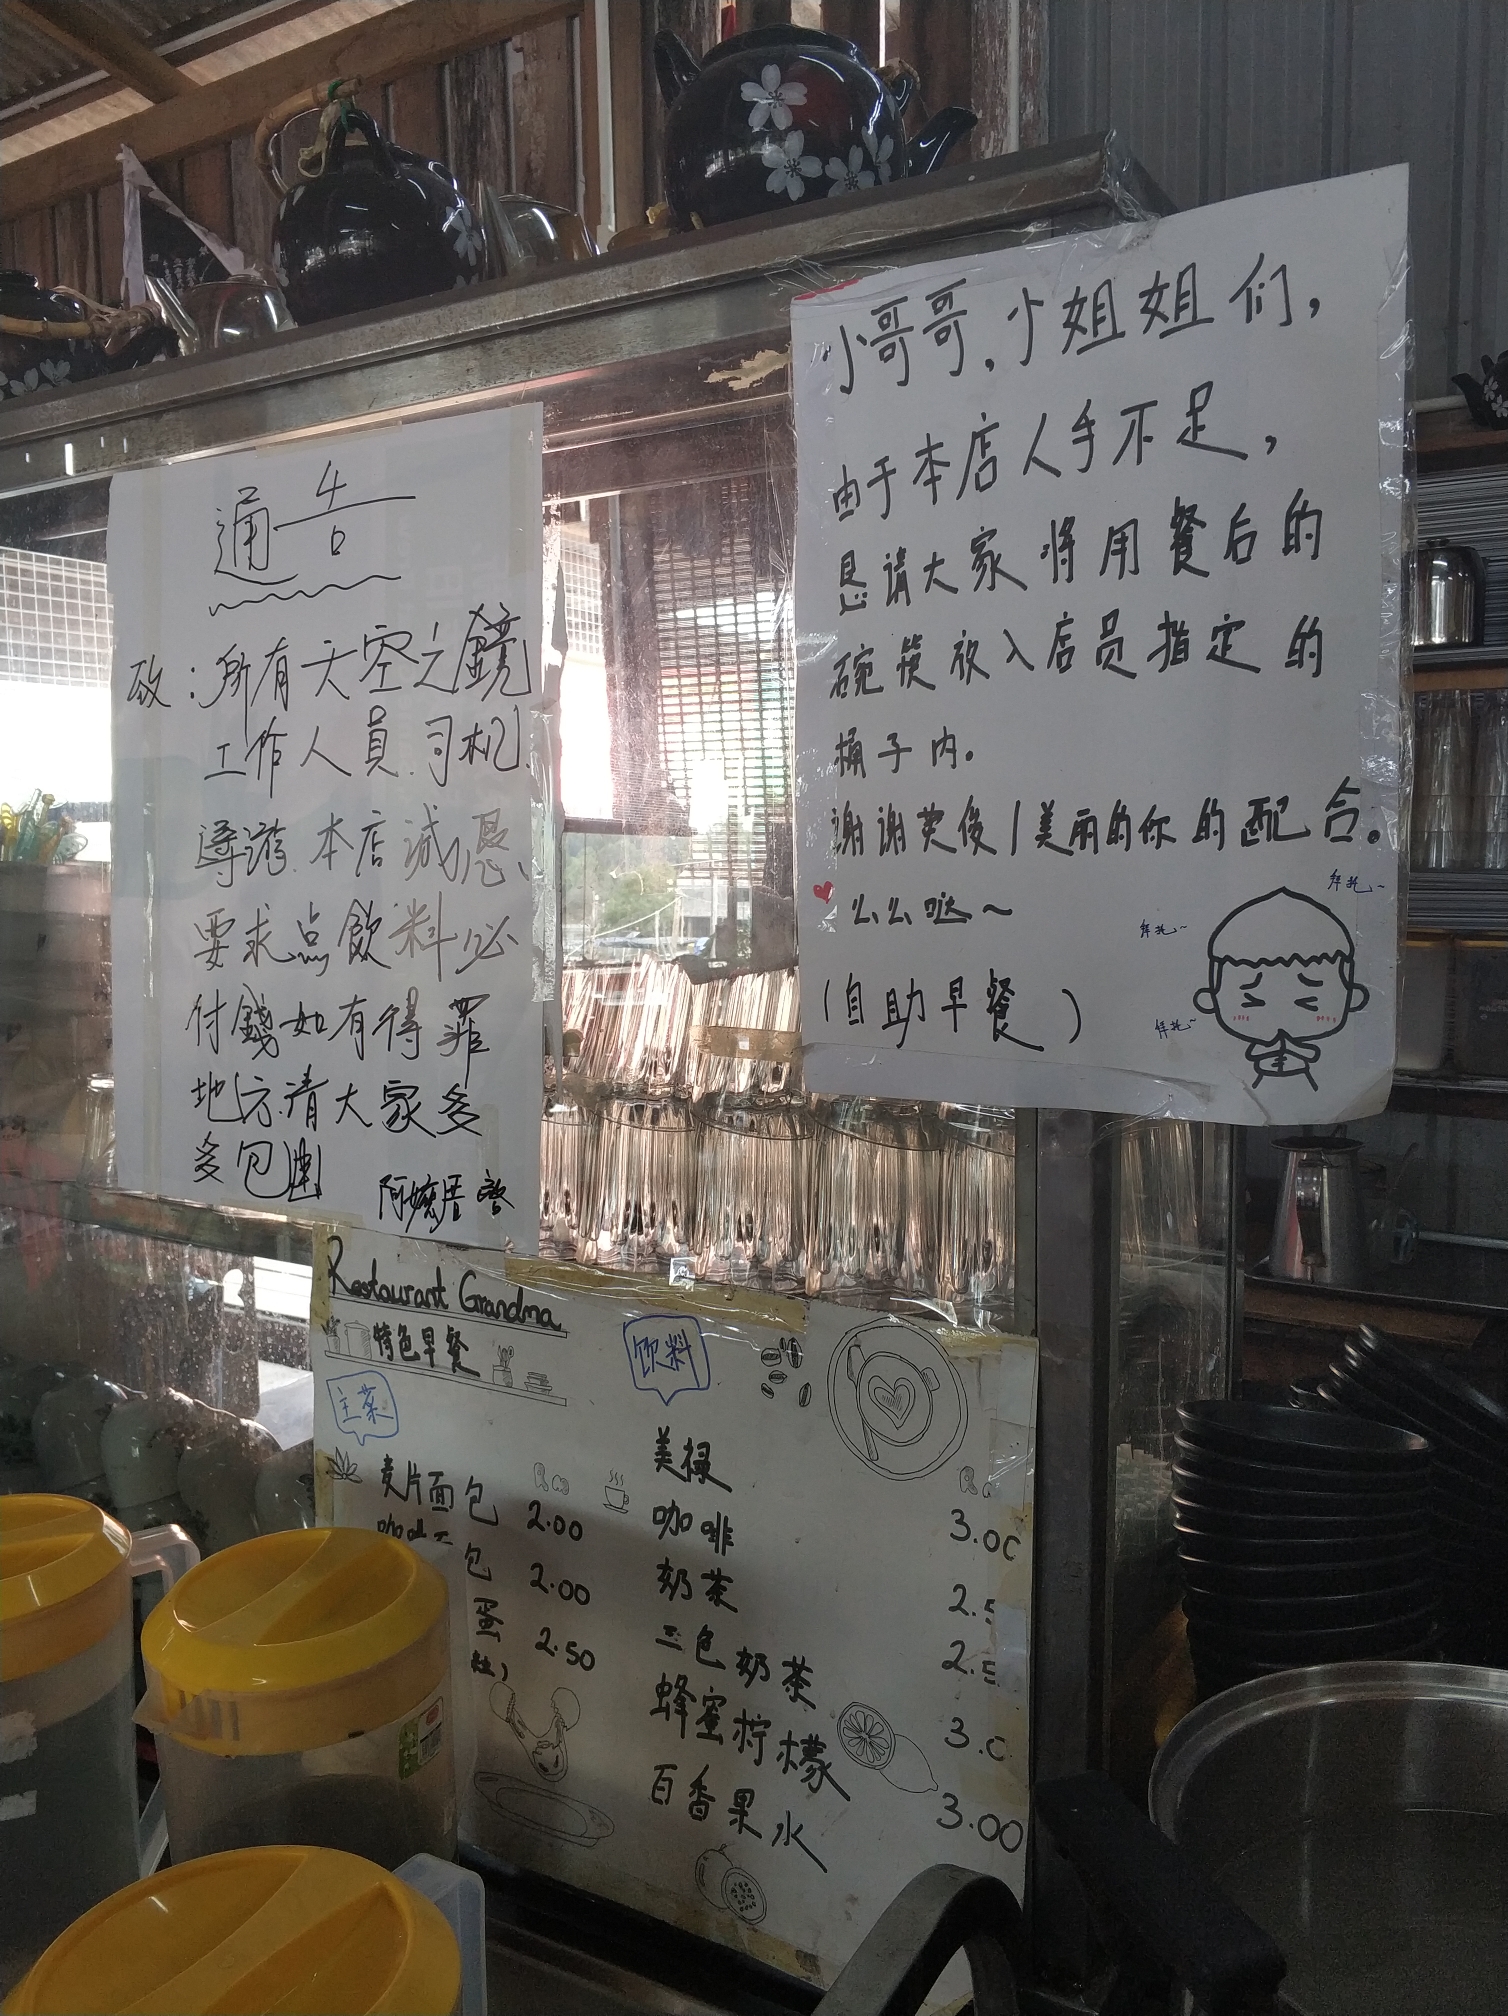 通告
致：所有天空之鏡
工作人員.司机.
導游.本店诚恳、
要求点飲料必
付錢如有得罪
地方.清大家多
多包凅
阿嬤厝 啓
小哥哥、小姐姐们，
由于本店人手不足，
恳请大家将用餐后的
碗筷放入店员指定的
桶子内。
谢谢英俊/美丽的你的配合。
么么哒~
(自助早餐)
拜托~
拜托~
拜托~
Restaurant Grandma
特色早餐
主菜
RM
麦片面包 2.00
包 2.00
蛋 2.50
粒)
饮料
美禄
咖啡 3.00
奶茶 2.5
三色奶茶 2.5
蜂蜜柠檬 3.0
百香果水 3.00